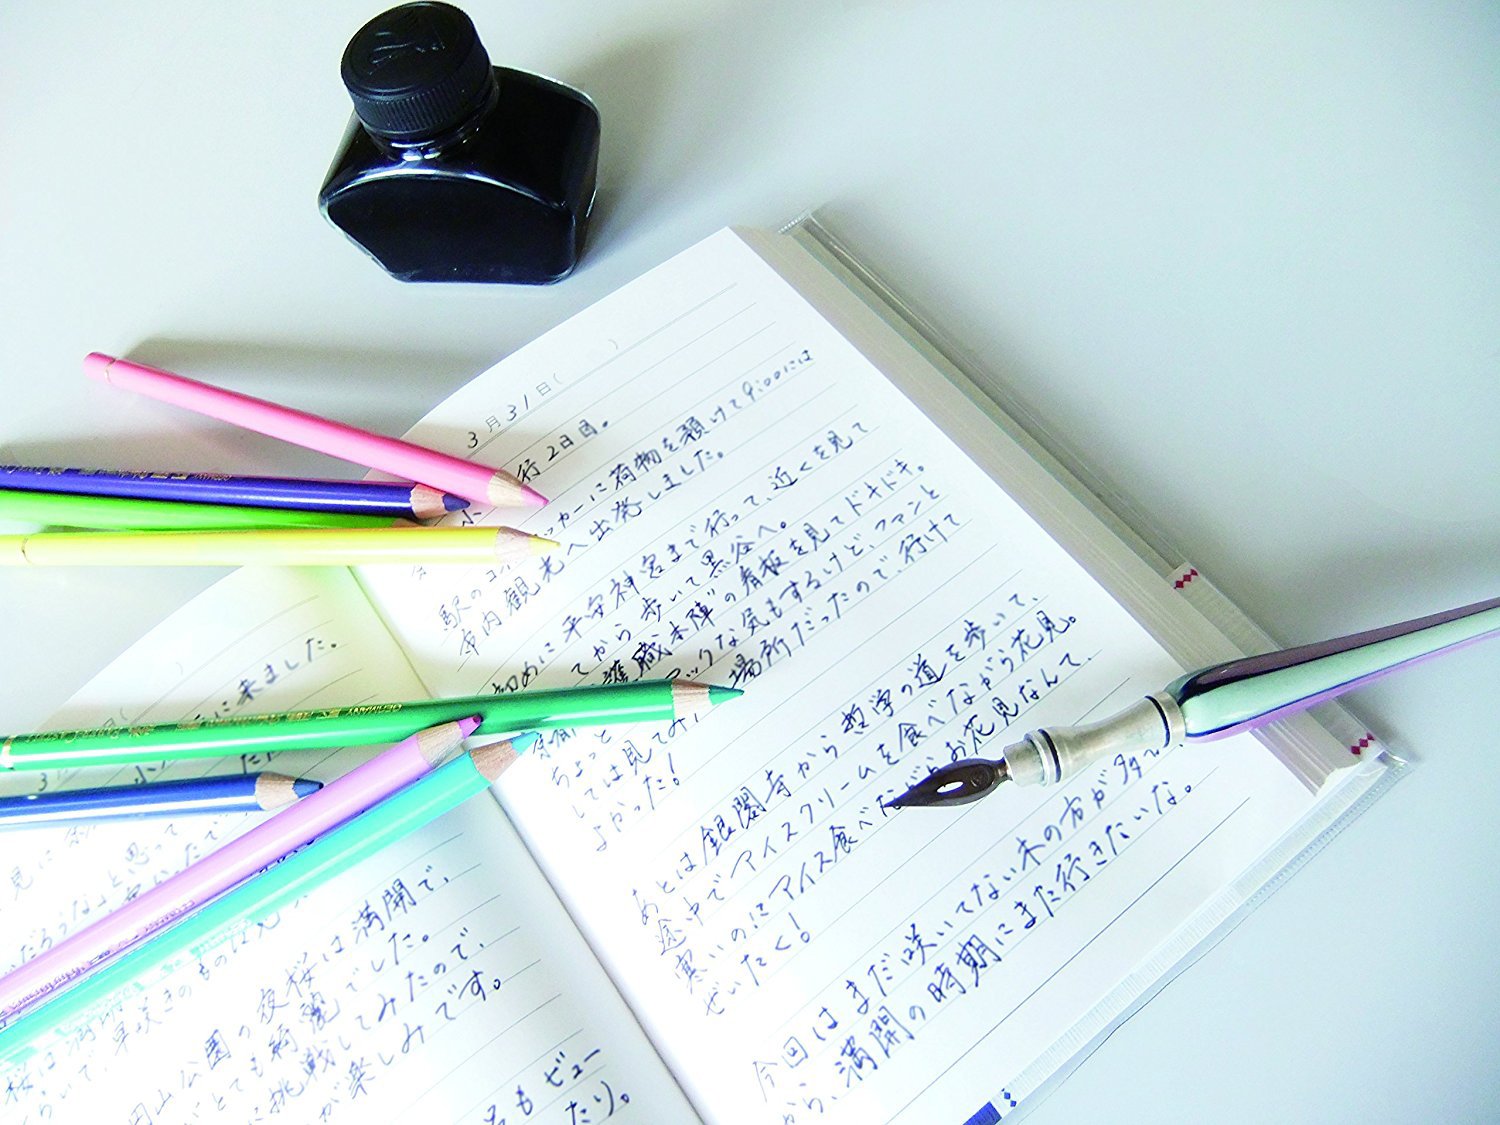 3月31日(　)
行2日目。
駅のコインロッカーに荷物を預けて9:00には
市内観光へ出発しました。
初めに平安神宮まで行って、近くを見て
てから歩いて黒谷へ。
護職本陣"の看板を見てドキドキ。
ちょっと　ックな気もするけど、ファンと
しては見てみ　場所だったので、行けて
よかった!
あとは銀閣寺から哲学の道を歩いて、
途中でアイスクリームを食べながら花見。
寒いのにアイス食べながらお花見なんて、
ぜいたく!
今回はまだ咲いてない木の方が
から、満開の時期にまた行きたいな。
に来ました。
3
見に
だろうな」と思って
桜は
らいで、早咲きのもの
円山公園の夜桜は満開で、
とても綺麗でした。
に挑戦してみたので、
が楽しみです。
もビュー
たり。